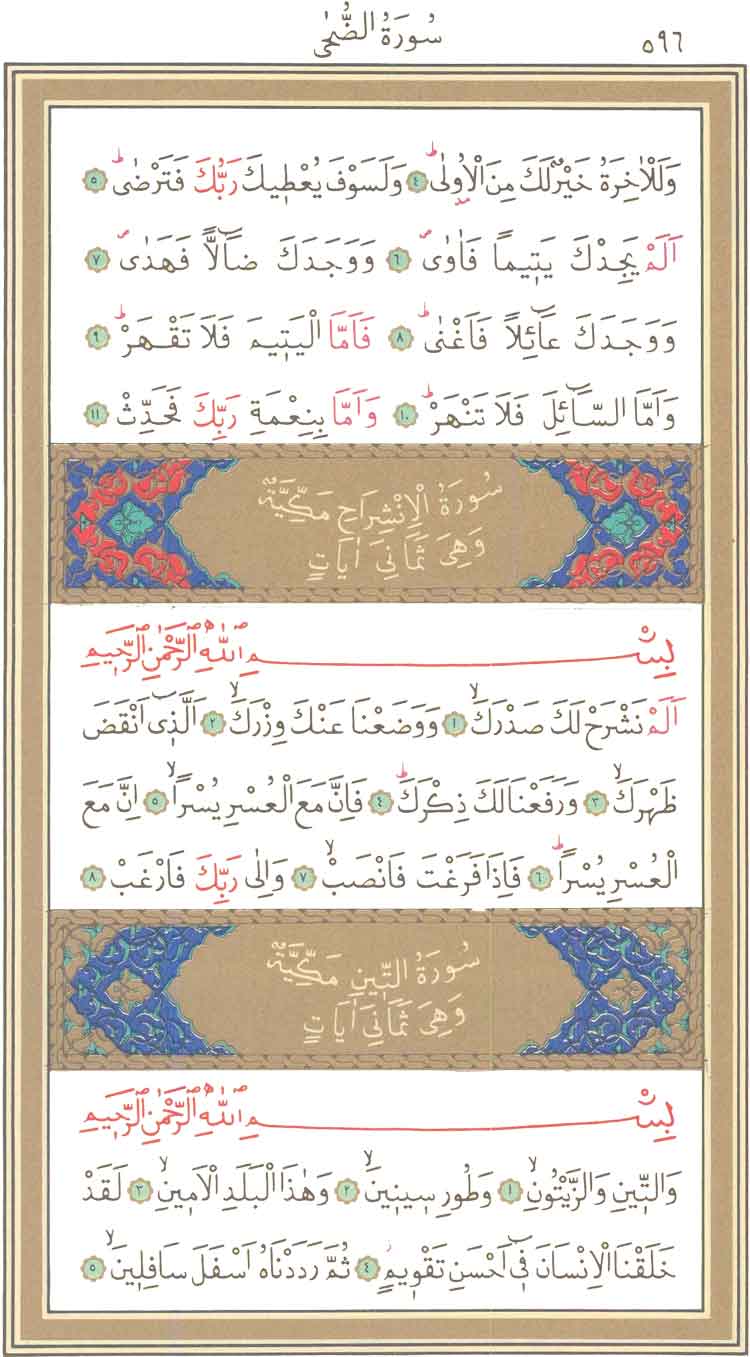 سُورَةُ الضُّحٰى ٥٩٦
وَلَلْاٰخِرَةُ خَيْرٌ لَكَ مِنَ الْاُو۫لٰىۜ ٤ وَلَسَوْفَ يُعْط۪يكَ رَبُّكَ فَتَرْضٰىۜ ٥
اَلَمْ يَجِدْكَ يَت۪يماً فَاٰوٰىۖ ٦ وَوَجَدَكَ ضَٓالاًّ فَهَدٰىۖ ٧
وَوَجَدَكَ عَٓائِلاً فَاَغْنٰىۜ ٨ فَاَمَّا الْيَت۪يمَ فَلَا تَقْهَرْۜ ٩
وَاَمَّا السَّٓائِلَ فَلَا تَنْهَرْۜ ١٠ وَاَمَّا بِنِعْمَةِ رَبِّكَ فَحَدِّثْ ١١
سُورَةُ الْاِنْشِرَاحِ مَكِّيَّةٌ
وَهِيَ ثَمَانِيَ اٰيَاتٍ
بِسْمِ اللّٰهِ الرَّحْمٰنِ الرَّح۪يمِ
اَلَمْ نَشْرَحْ لَكَ صَدْرَكَۙ ١ وَوَضَعْنَا عَنْكَ وِزْرَكَۙ ٢ اَلَّـذ۪ٓي اَنْقَضَ
ظَهْرَكَۙ ٣ وَرَفَعْنَا لَكَ ذِكْرَكَۜ ٤ فَاِنَّ مَعَ الْعُسْرِ يُسْراًۙ ٥ اِنَّ مَعَ
الْعُسْرِ يُسْراًۜ ٦ فَاِذَا فَرَغْتَ فَانْصَبْۙ ٧ وَاِلٰى رَبِّكَ فَارْغَبْ ٨
سُورَةُ التّ۪ينِ مَكِّيَّةٌ
وَهِيَ ثَمَانِيَ اٰيَاتٍ
بِسْمِ اللّٰهِ الرَّحْمٰنِ الرَّح۪يمِ
وَالتّ۪ينِ وَالزَّيْتُونِۙ ١ وَطُورِ س۪ين۪ينَۙ ٢ وَهٰذَا الْبَلَدِ الْاَم۪ينِۙ ٣ لَقَدْ
خَلَقْنَا الْاِنْسَانَ ف۪ٓي اَحْسَنِ تَقْو۪يمٍۘ ٤ ثُمَّ رَدَدْنَاهُ اَسْفَلَ سَافِل۪ينَۙ ٥